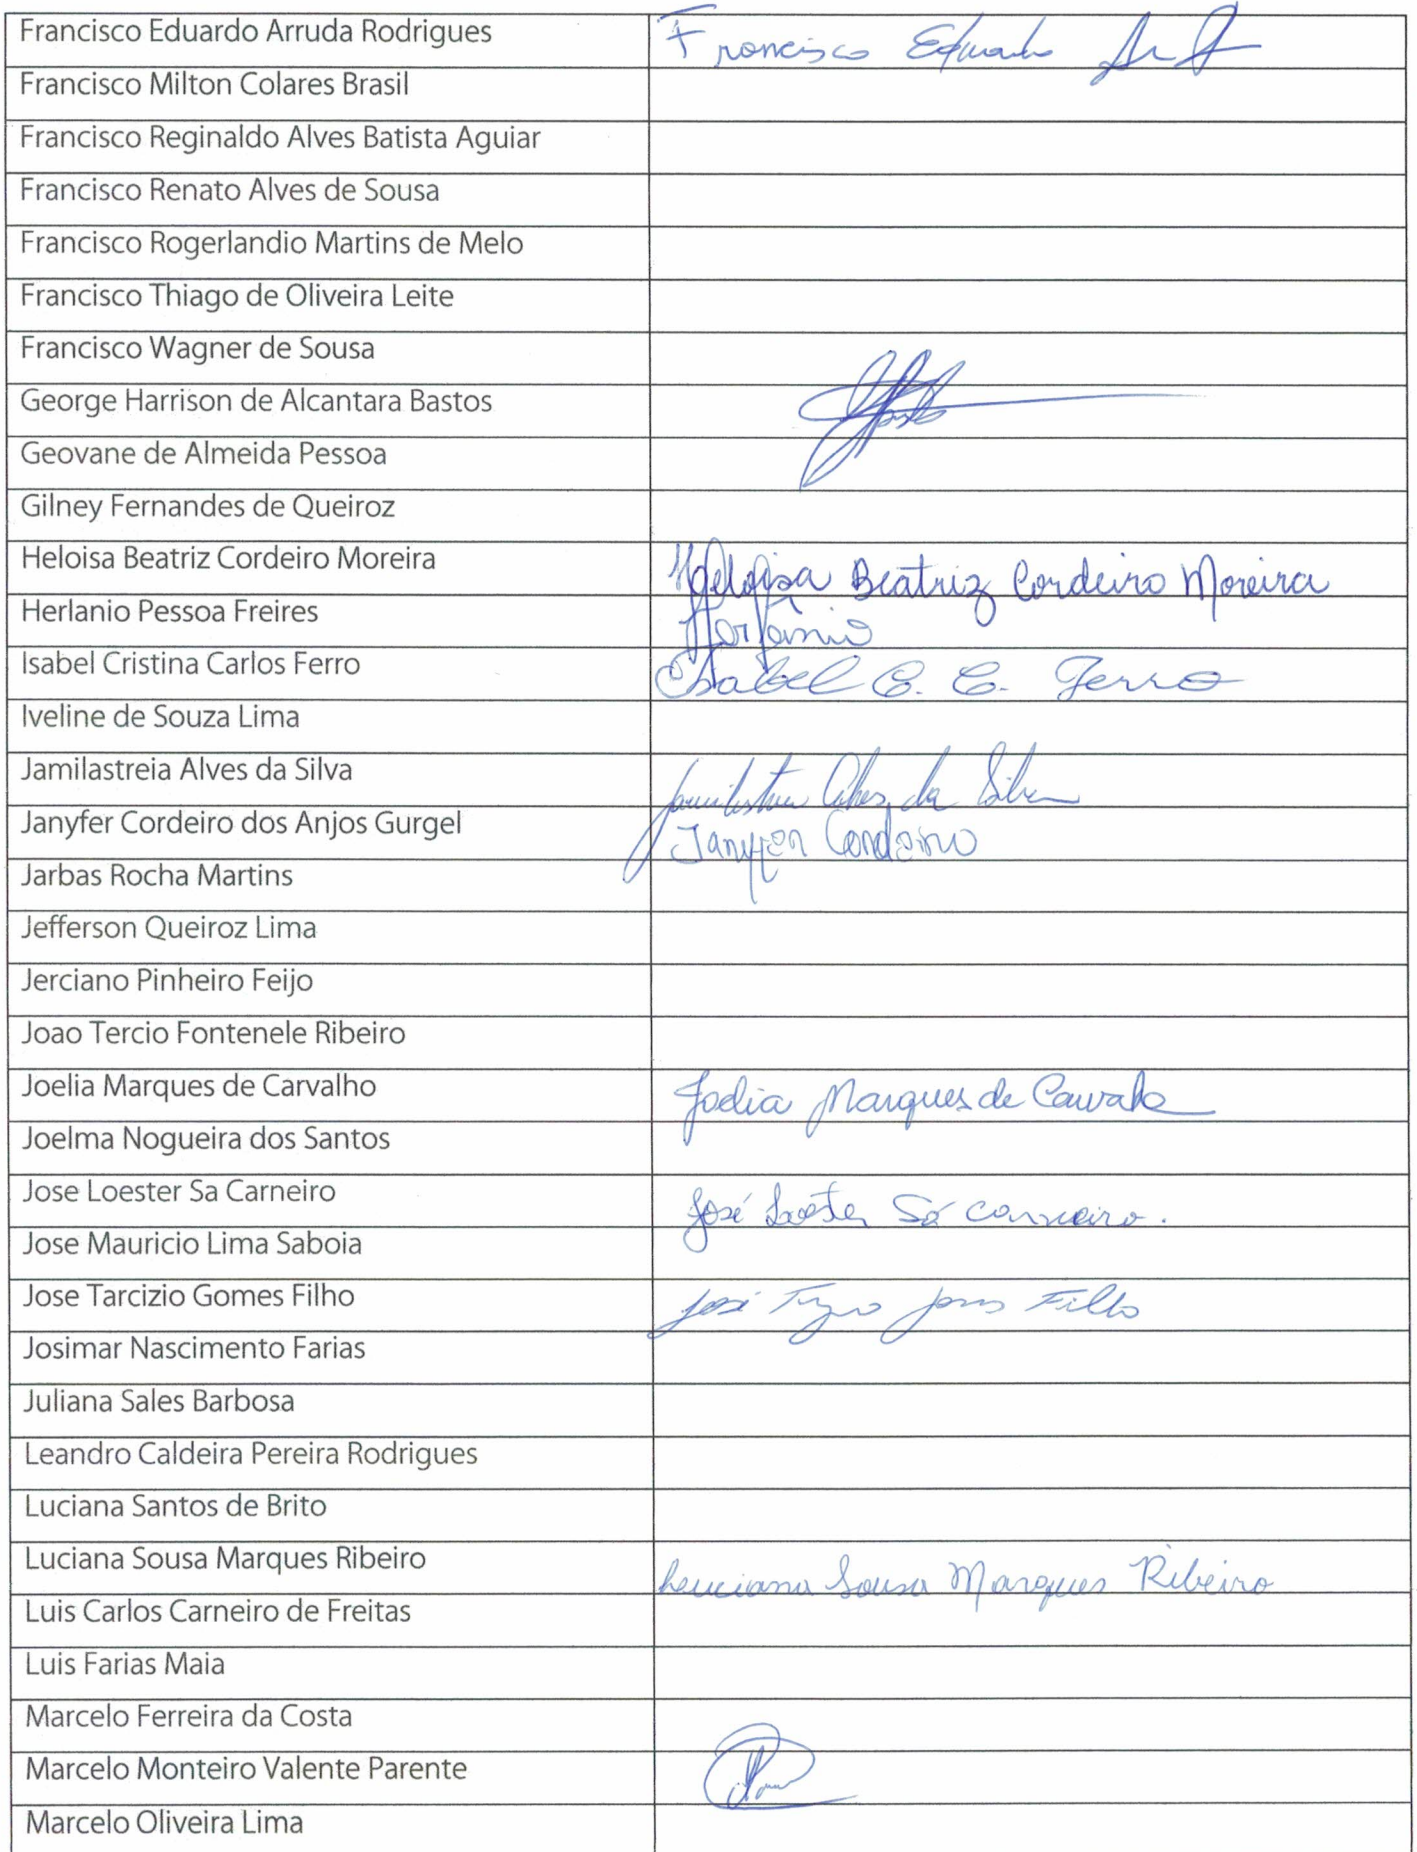 Francisco Eduardo Arruda Rodrigues Francisco Eduardo
Francisco Milton Colares Brasil
Francisco Reginaldo Alves Batista Aguiar
Francisco Renato Alves de Sousa
Francisco Rogerlandio Martins de Melo
Francisco Thiago de Oliveira Leite
Francisco Wagner de Sousa
George Harrison de Alcantara Bastos
Geovane de Almeida Pessoa
Gilney Fernandes de Queiroz
Heloisa Beatriz Cordeiro Moreira Heloisa Beatriz Cordeiro Moreira
Herlanio Pessoa Freires Herlânio
Isabel Cristina Carlos Ferro Isabel C. C. Ferro
Iveline de Souza Lima
Jamilastreia Alves da Silva Jamilastreia Alves da Silva
Janyfer Cordeiro dos Anjos Gurgel Janyfer Cordeiro
Jarbas Rocha Martins
Jefferson Queiroz Lima
Jerciano Pinheiro Feijo
Joao Tercio Fontenele Ribeiro
Joelia Marques de Carvalho Joelia Marques de Carvalho
Joelma Nogueira dos Santos
Jose Loester Sa Carneiro José Loester Sá Carneiro.
Jose Mauricio Lima Saboia
Jose Tarcizio Gomes Filho José Tarcizio Gomes Filho
Josimar Nascimento Farias
Juliana Sales Barbosa
Leandro Caldeira Pereira Rodrigues
Luciana Santos de Brito
Luciana Sousa Marques Ribeiro Luciana Sousa Marques Ribeiro
Luis Carlos Carneiro de Freitas
Luis Farias Maia
Marcelo Ferreira da Costa
Marcelo Monteiro Valente Parente
Marcelo Oliveira Lima